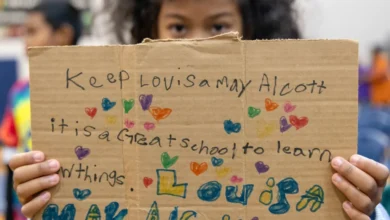 Keep Lovisa may Alcott
it is a Great school to learn
n things.
Louisa
MAY